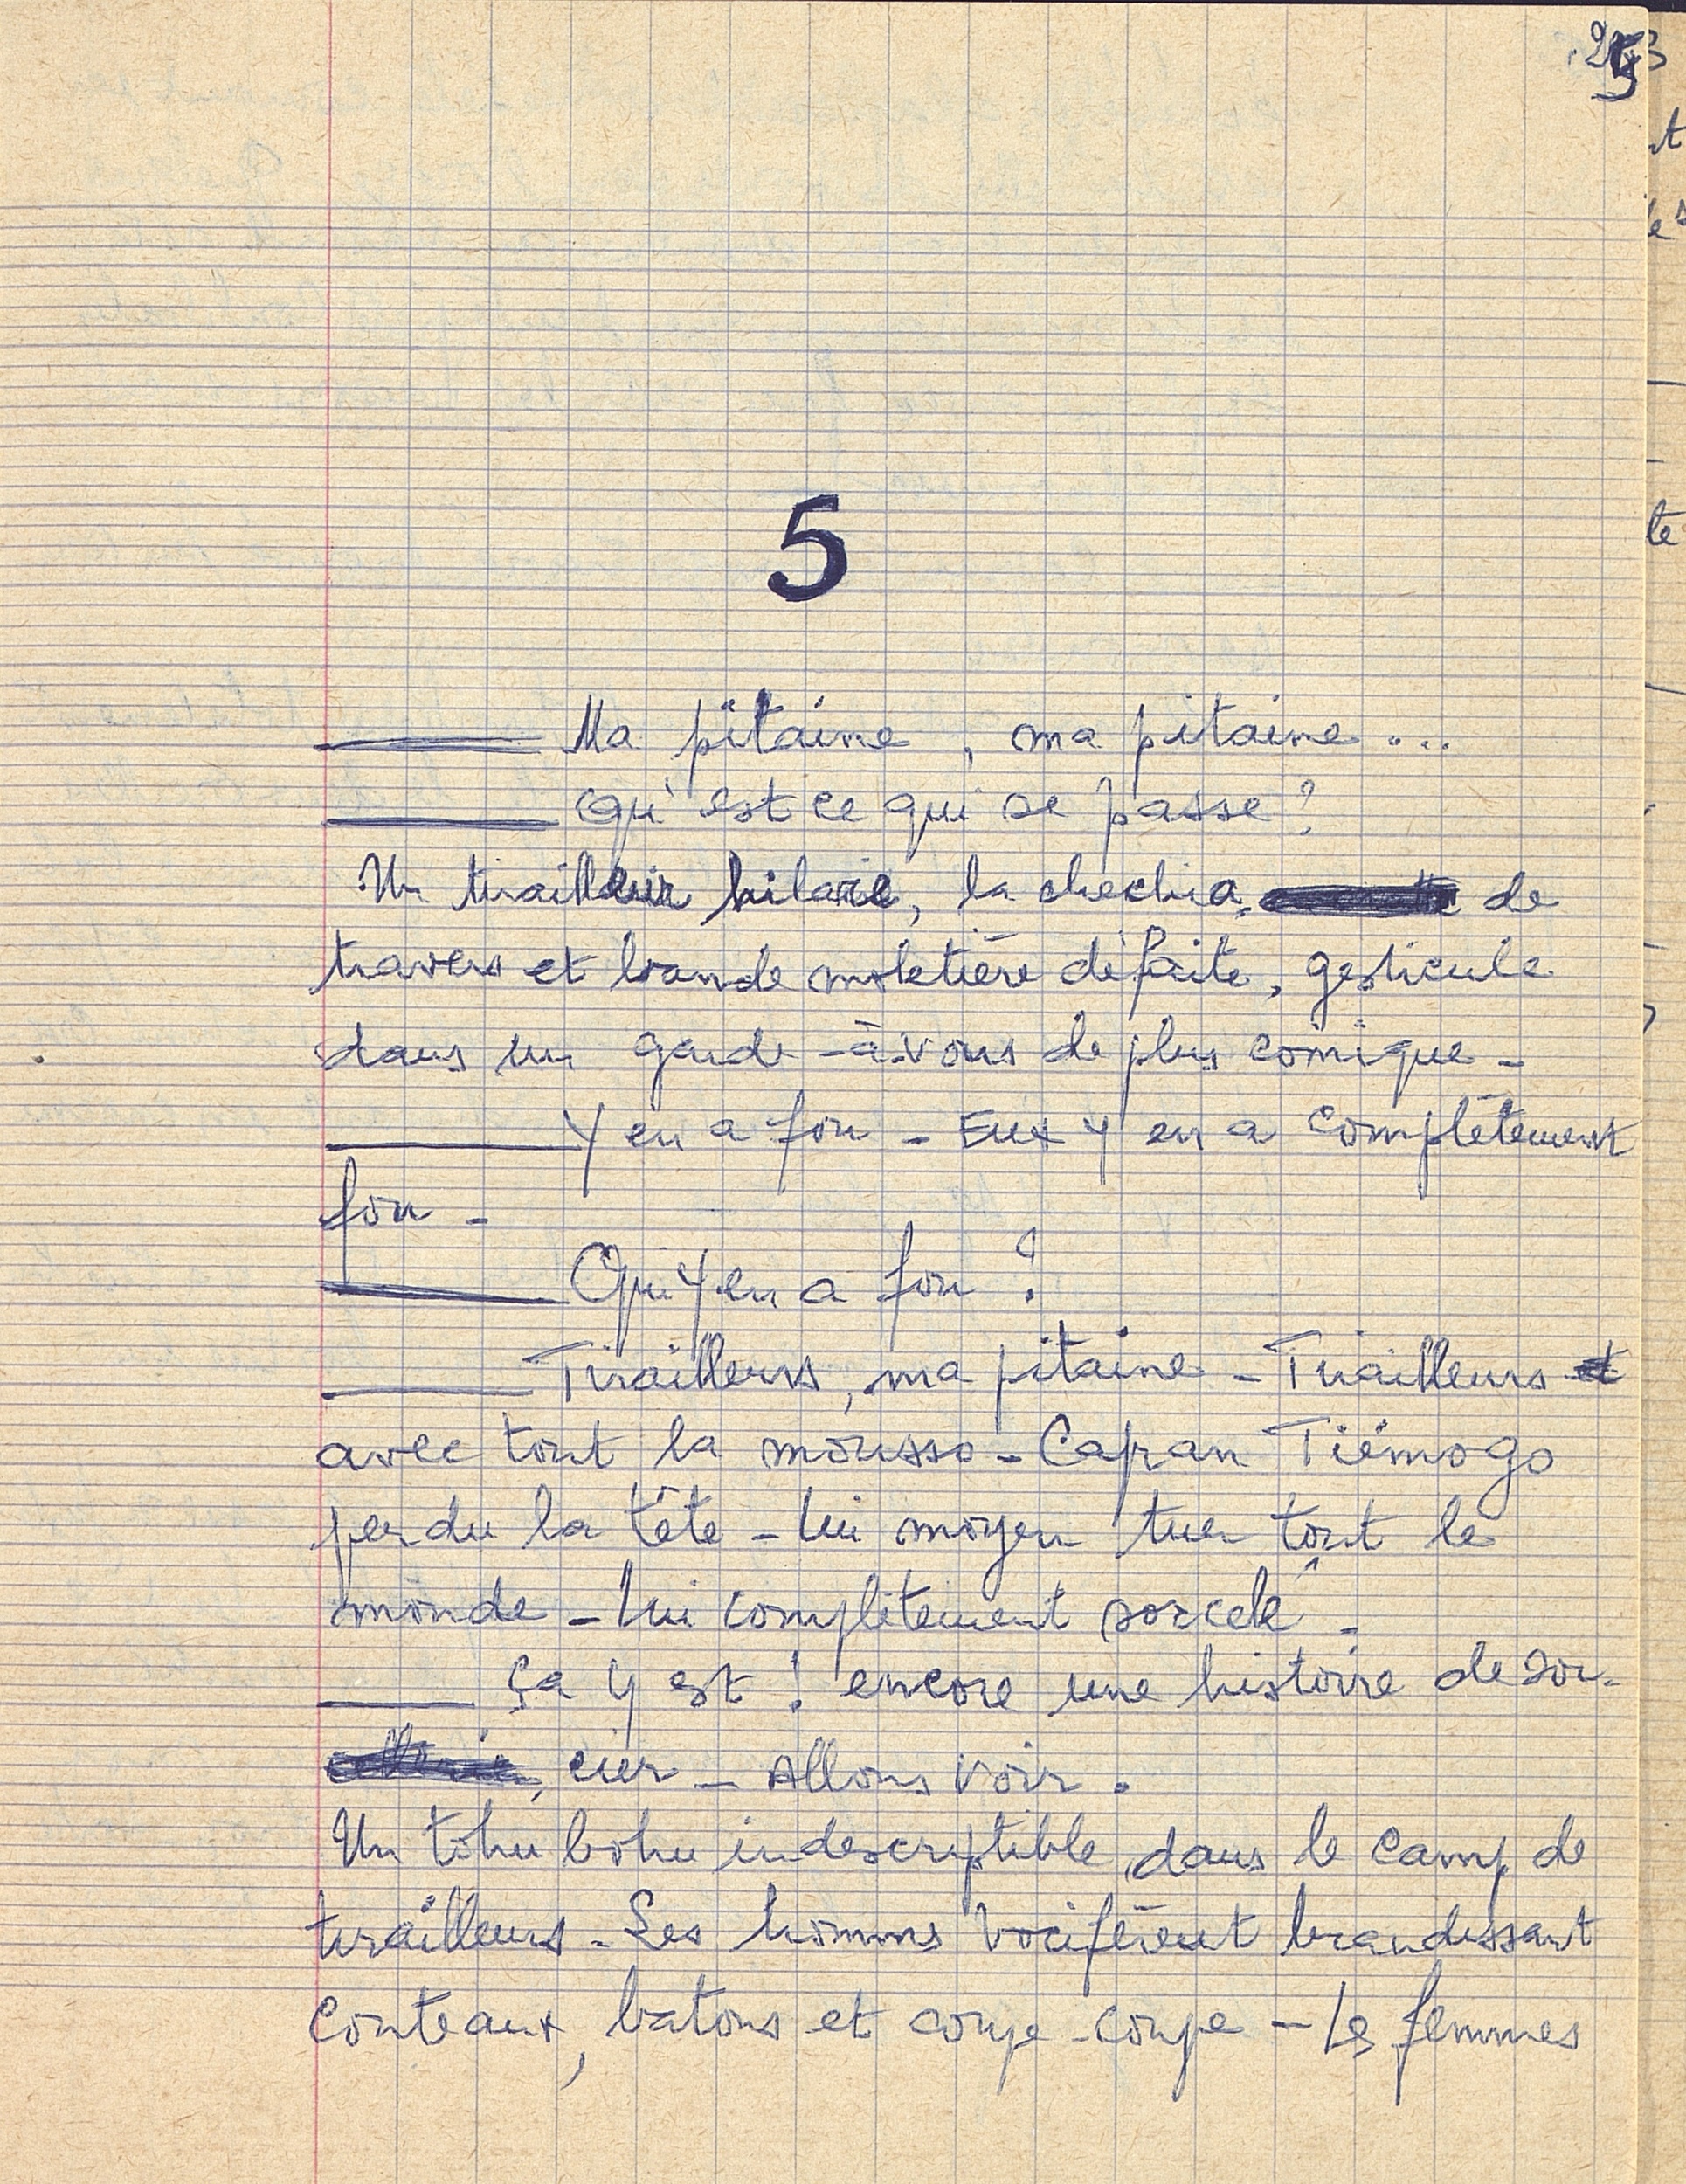 5
— Ma pitaine, ma pitaine...
— Qu'est ce qui se passe?
Un tirailleur hilare, la chechia, de
travers et bande moletière défaite, gesticule
dans un garde-à-vous de plus comique -
— Y en a fou - Eux y en a complètement
fou -
— Qui y en a fou?
— Tirailleurs, ma pitaine - Tirailleurs
avec tout la mousso - Capran Tiémogo
perdu la tête - Lui moyen tuer tout le
monde - Lui complètement sorcelé -
— Ça y est! encore une histoire de sor-
cier - Allons voir.
Un tohu bohu indescriptible, dans le camp de
tirailleurs - Les hommes vocifèrent brandissant
couteaux, batons et coupe-coupe - Les femmes